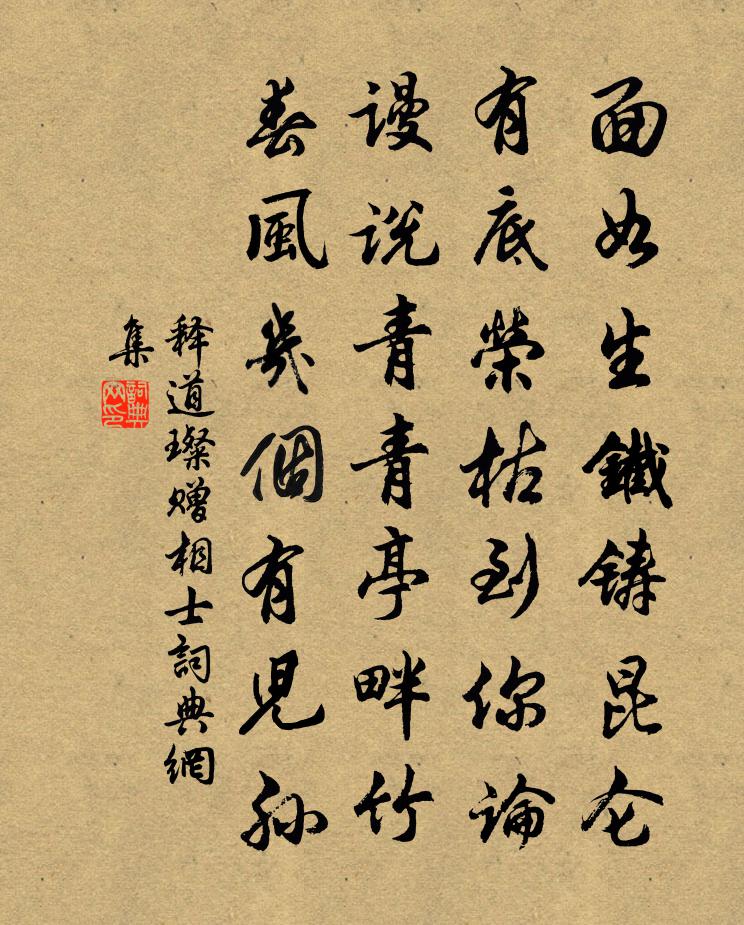 面如生鐵鑄昆仑
有底榮枯到你論
谩说青青亭畔竹
春風幾個有兒孫
释道璨赠相士詞典網
集
詞典网印